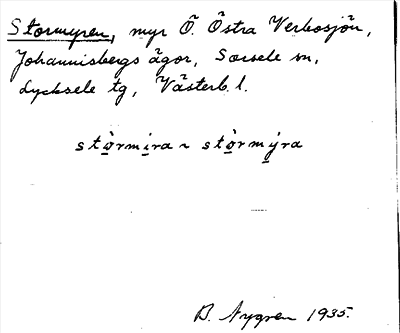 Stormyren, myr Ö. Östra Verbosjön,
Johannisbergs ägor, Sorsele sn,
Lycksele tg, Västerb. l.
stòrmira ~ stòrmýra
B. Nygren 1935.